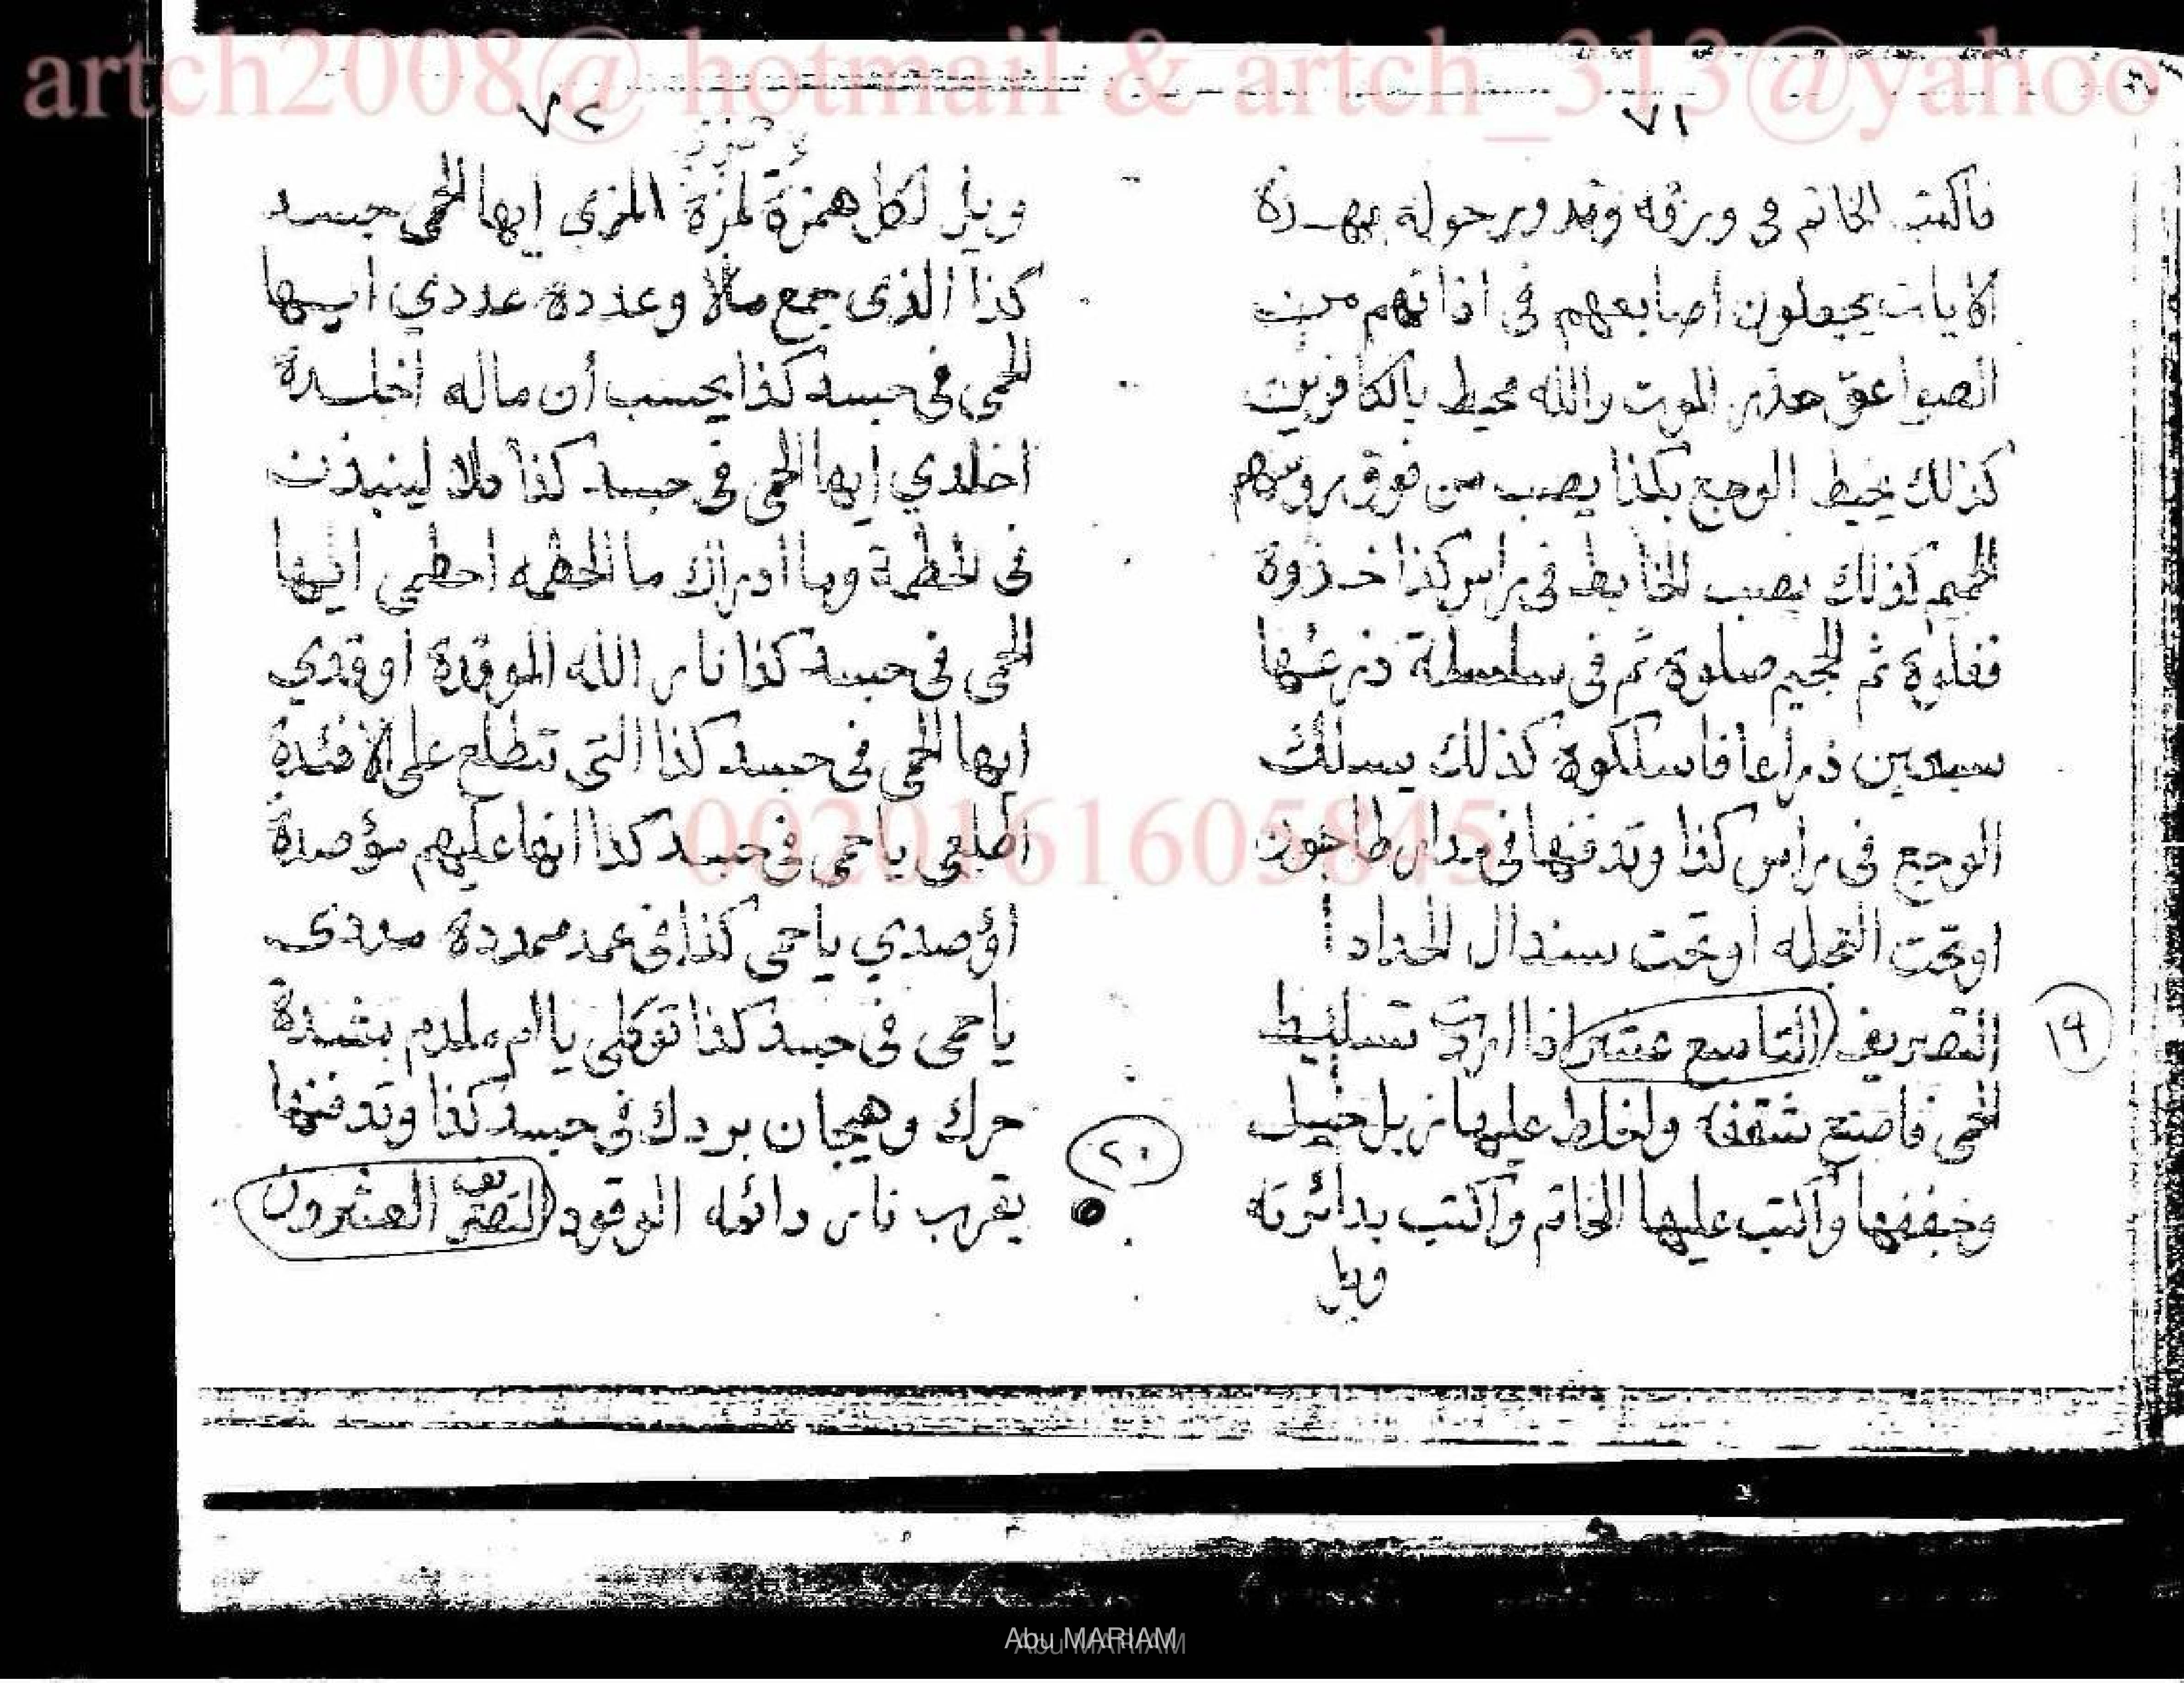 artch2008@ hotmail & artch_313@yahoo
٧١
فاكتب الخاتم فى ورقه وتدوير حوله بهـذة
الايات يجعلون اصابعهم فى اذانهم من
الصواعق حذر الموت والله محيط بالكافرين
كذلك يحيط الوجع بكذا يصب من فوق روسهم
الحميم كذلك يصب الخابط فى راس كذا خـذوة
فغلوة ثم الجحيم صلوة ثم فى سلسلة ذرعها
سبعين ذراعا فاسلكوة كذلك يسلك
الوجع فى راس كذا وتدفنها فى مدار طاحون
اوتحت العجله اوتحت سندال الحداد
١٩
التصريف التاسع عشر اذا اردت تسليط
الحمى فاصنع شقفه ولخلط عليها زبل خيل
وخففها واكتب عليها الخاتم واكتب بدائرته
ويل
٧٢
ويل لكل همزة لمزة المزى ايها الحمى جسد
كذا الذى جمع مالا وعددة عددي ايها
الحمى فى جسد كذا يحسب أن ماله أخلدة
اخلدي ايها الحمى فى جسد كذا كلا لينبذن
فى الحطمة وما ادراك ما الحطمه احطمى ايها
الحمى فى جسد كذا نار الله الموقدة اوقدي
ايها الحمى فى جسد كذا التى تطلع على الأفئدة
اطلعى ياحمى فى جسد كذا انها عليهم مؤصدة
اؤصدي ياحمى كذا فى عمد ممددة مددى
ياحمى فى جسد كذا توكلى ياام ملدم بشدة
حرك وهيجان بردك فى جسد كذا وتدفنها
٢٠
بقرب نار دائمه الوقود التصريف العشرون
0020161605845
Abu MARIAM